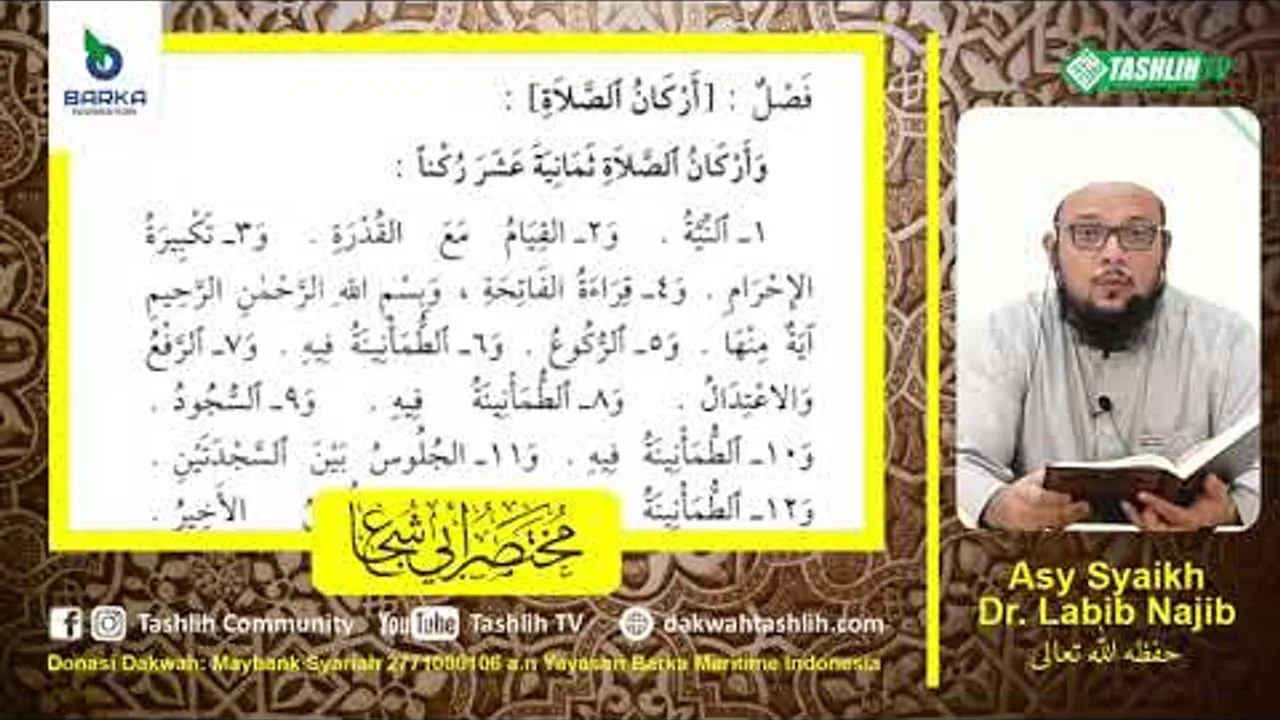 BARKA
FOUNDATION
TASHLIH TV
فَصْلٌ : [أَرْكَانُ ٱلصَّلاَةِ] :
وَأَرْكَانُ ٱلصَّلاَةِ ثَمَانِيَةَ عَشَرَ رُكْناً :
١ـ ٱلنِّيَّةُ . وَ٢ـ القِيَامُ مَعَ القُدْرَةِ . وَ٣ـ تَكْبِيرَةُ
الإِحْرَامِ . وَ٤ـ قِرَاءَةُ الفَاتِحَةِ ، وَبِسْمِ اللهِ الرَّحْمٰنِ الرَّحِيمِ
آيَةٌ مِنْهَا . وَ٥ـ ٱلرُّكُوعُ . وَ٦ـ ٱلطُّمَأْنِينَةُ فِيهِ . وَ٧ـ ٱلرَّفْعُ
وَالاعْتِدَالُ . وَ٨ـ ٱلطُّمَأْنِينَةُ فِيهِ . وَ٩ـ ٱلسُّجُودُ .
وَ١٠ـ ٱلطُّمَأْنِينَةُ فِيهِ . وَ١١ـ الجُلُوسُ بَيْنَ ٱلسَّجْدَتَيْنِ .
وَ١٢ـ ٱلطُّمَأْنِينَةُ الأَخِيرُ .
مختصر أبي شجاع
Asy Syaikh
Dr. Labib Najib
حفظه الله تعالى
Tashlih Community YouTube Tashlih TV dakwahtashlih.com
Donasi Dakwah: Maybank Syariah 2771000106 a.n Yayasan Barka Maritime Indonesia